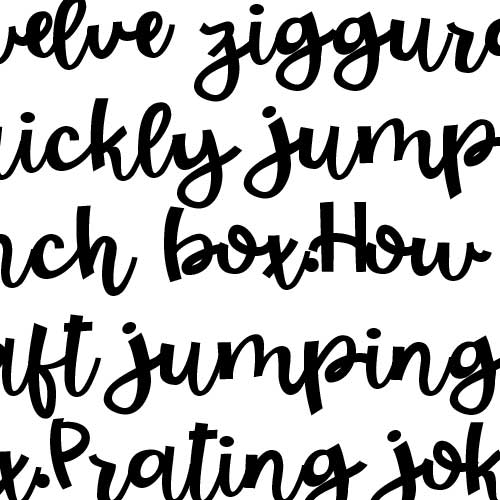 welve ziggura
uickly jump
nch box.How
aft jumping
x.Prating jok